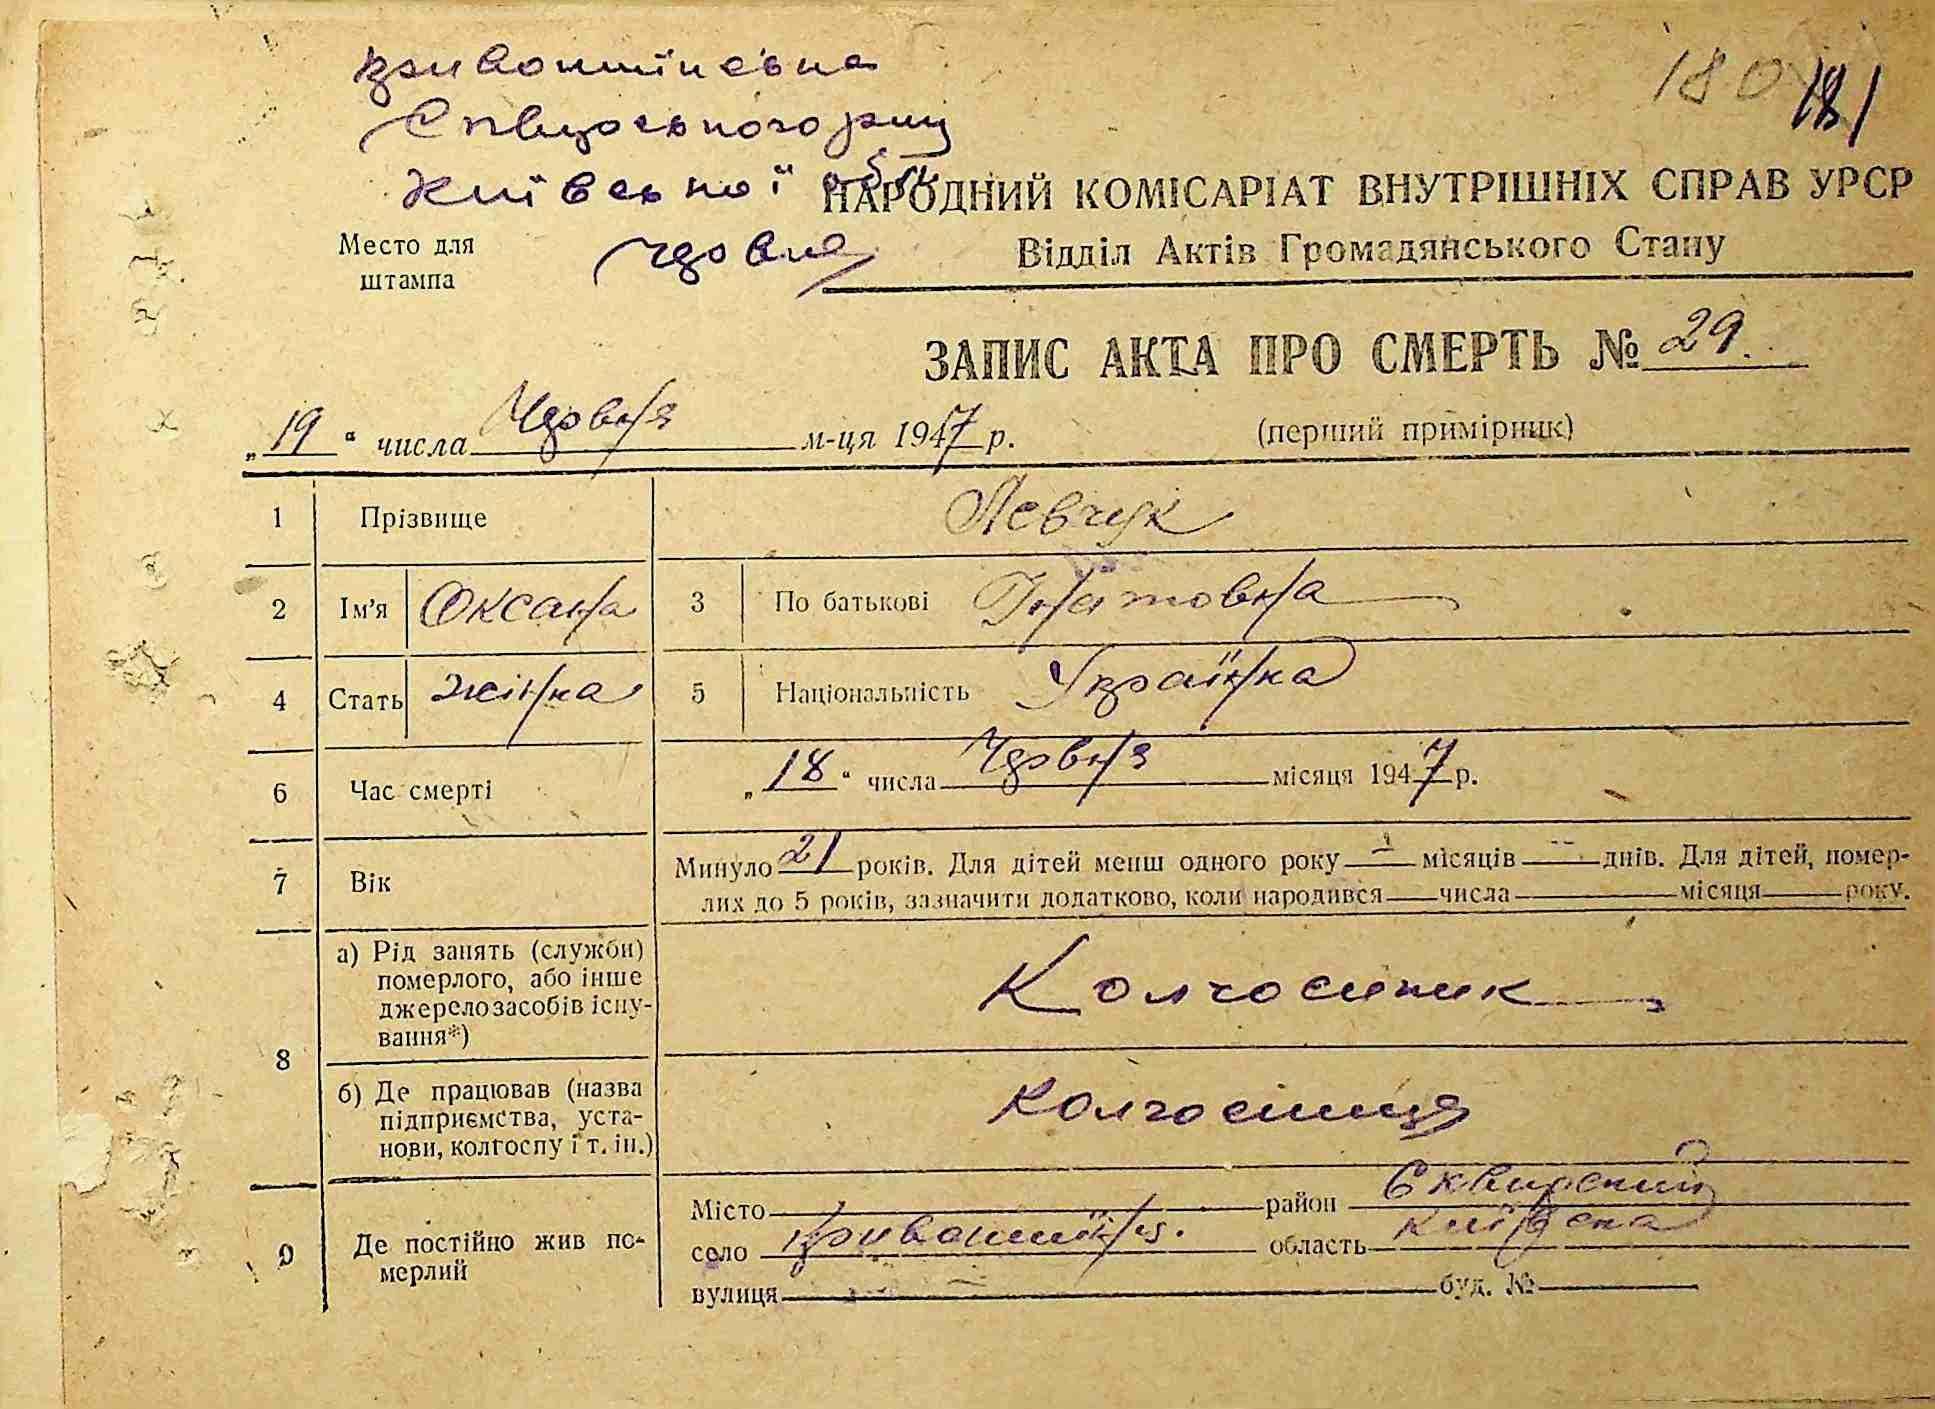 Кривошиїнська
Київської обл
180 181
НАРОДНИЙ КОМІСАРІАТ ВНУТРІШНІХ СПРАВ УРСР
Відділ Актів Громадянського Стану
Место для
штампа
ЗАПИС АКТА ПРО СМЕРТЬ № 29.
„19“ числа Червня м-ця 1947 р.
(перший примірник)
1 Прізвище Левчук
2 Ім'я Оксана 3 По батькові Гнатовна
4 Стать жінка 5 Національність Українка
6 Час смерті „18“ числа Червня місяця 1947 р.
7 Вік Минуло 21 років. Для дітей менш одного року — місяців — днів. Для дітей, помер-
лих до 5 років, зазначити додатково, коли народився числа місяця року.
8 а) Рід занять (служби)
померлого, або інше
джерело засобів існу-
вання*)
Колгоспник
б) Де працював (назва
підприємства, уста-
нови, колгоспу і т. ін.)
колгоспниця
9 Де постійно жив по-
мерлий
Місто район Сквирский
село Кривошиїнці. область Київска
вулиця буд. №